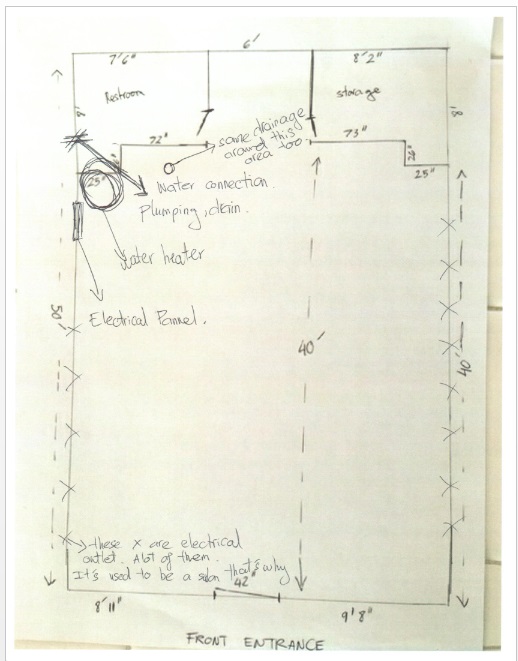 6'
7'6"
8'2"
Restroom
storage
8'
8'
some drainage
around this
area too.
72"
73"
26"
25"
25"
Water connection.
Plumping, drain.
Water heater
Electrical Pannel.
50'
40'
40'
these x are electrical
outlet. A lot of them.
It's used to be a salon that's why
42"
8'11"
9'8"
FRONT ENTRANCE